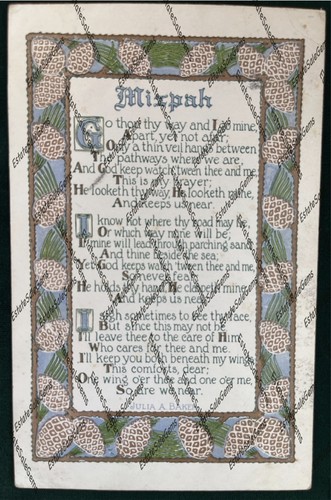 Mizpah
Go thou thy way and I go mine,
Apart, yet not afar;
Only a thin veil hangs between
The pathways where we are,
And God keep watch 'tween thee and me,
This is my prayer;
He looketh thy way, He looketh mine,
And keeps us near.
I know not where thy road may lie
Or which way mine will be;
If mine will lead through parching sands
And thine beside the sea;
Yet God keeps watch 'tween thee and me,
So never fear;
He holds thy hand, He claspeth mine,
And keeps us near.
I sigh sometimes to see thy face,
But since this may not be
I'll leave thee to the care of Him
Who cares for thee and me.
I'll keep you both beneath my wings
This comforts, dear;
One wing o'er thee and one o'er me,
So we are near.
JULIA A. BAKER
EstateSaleGems